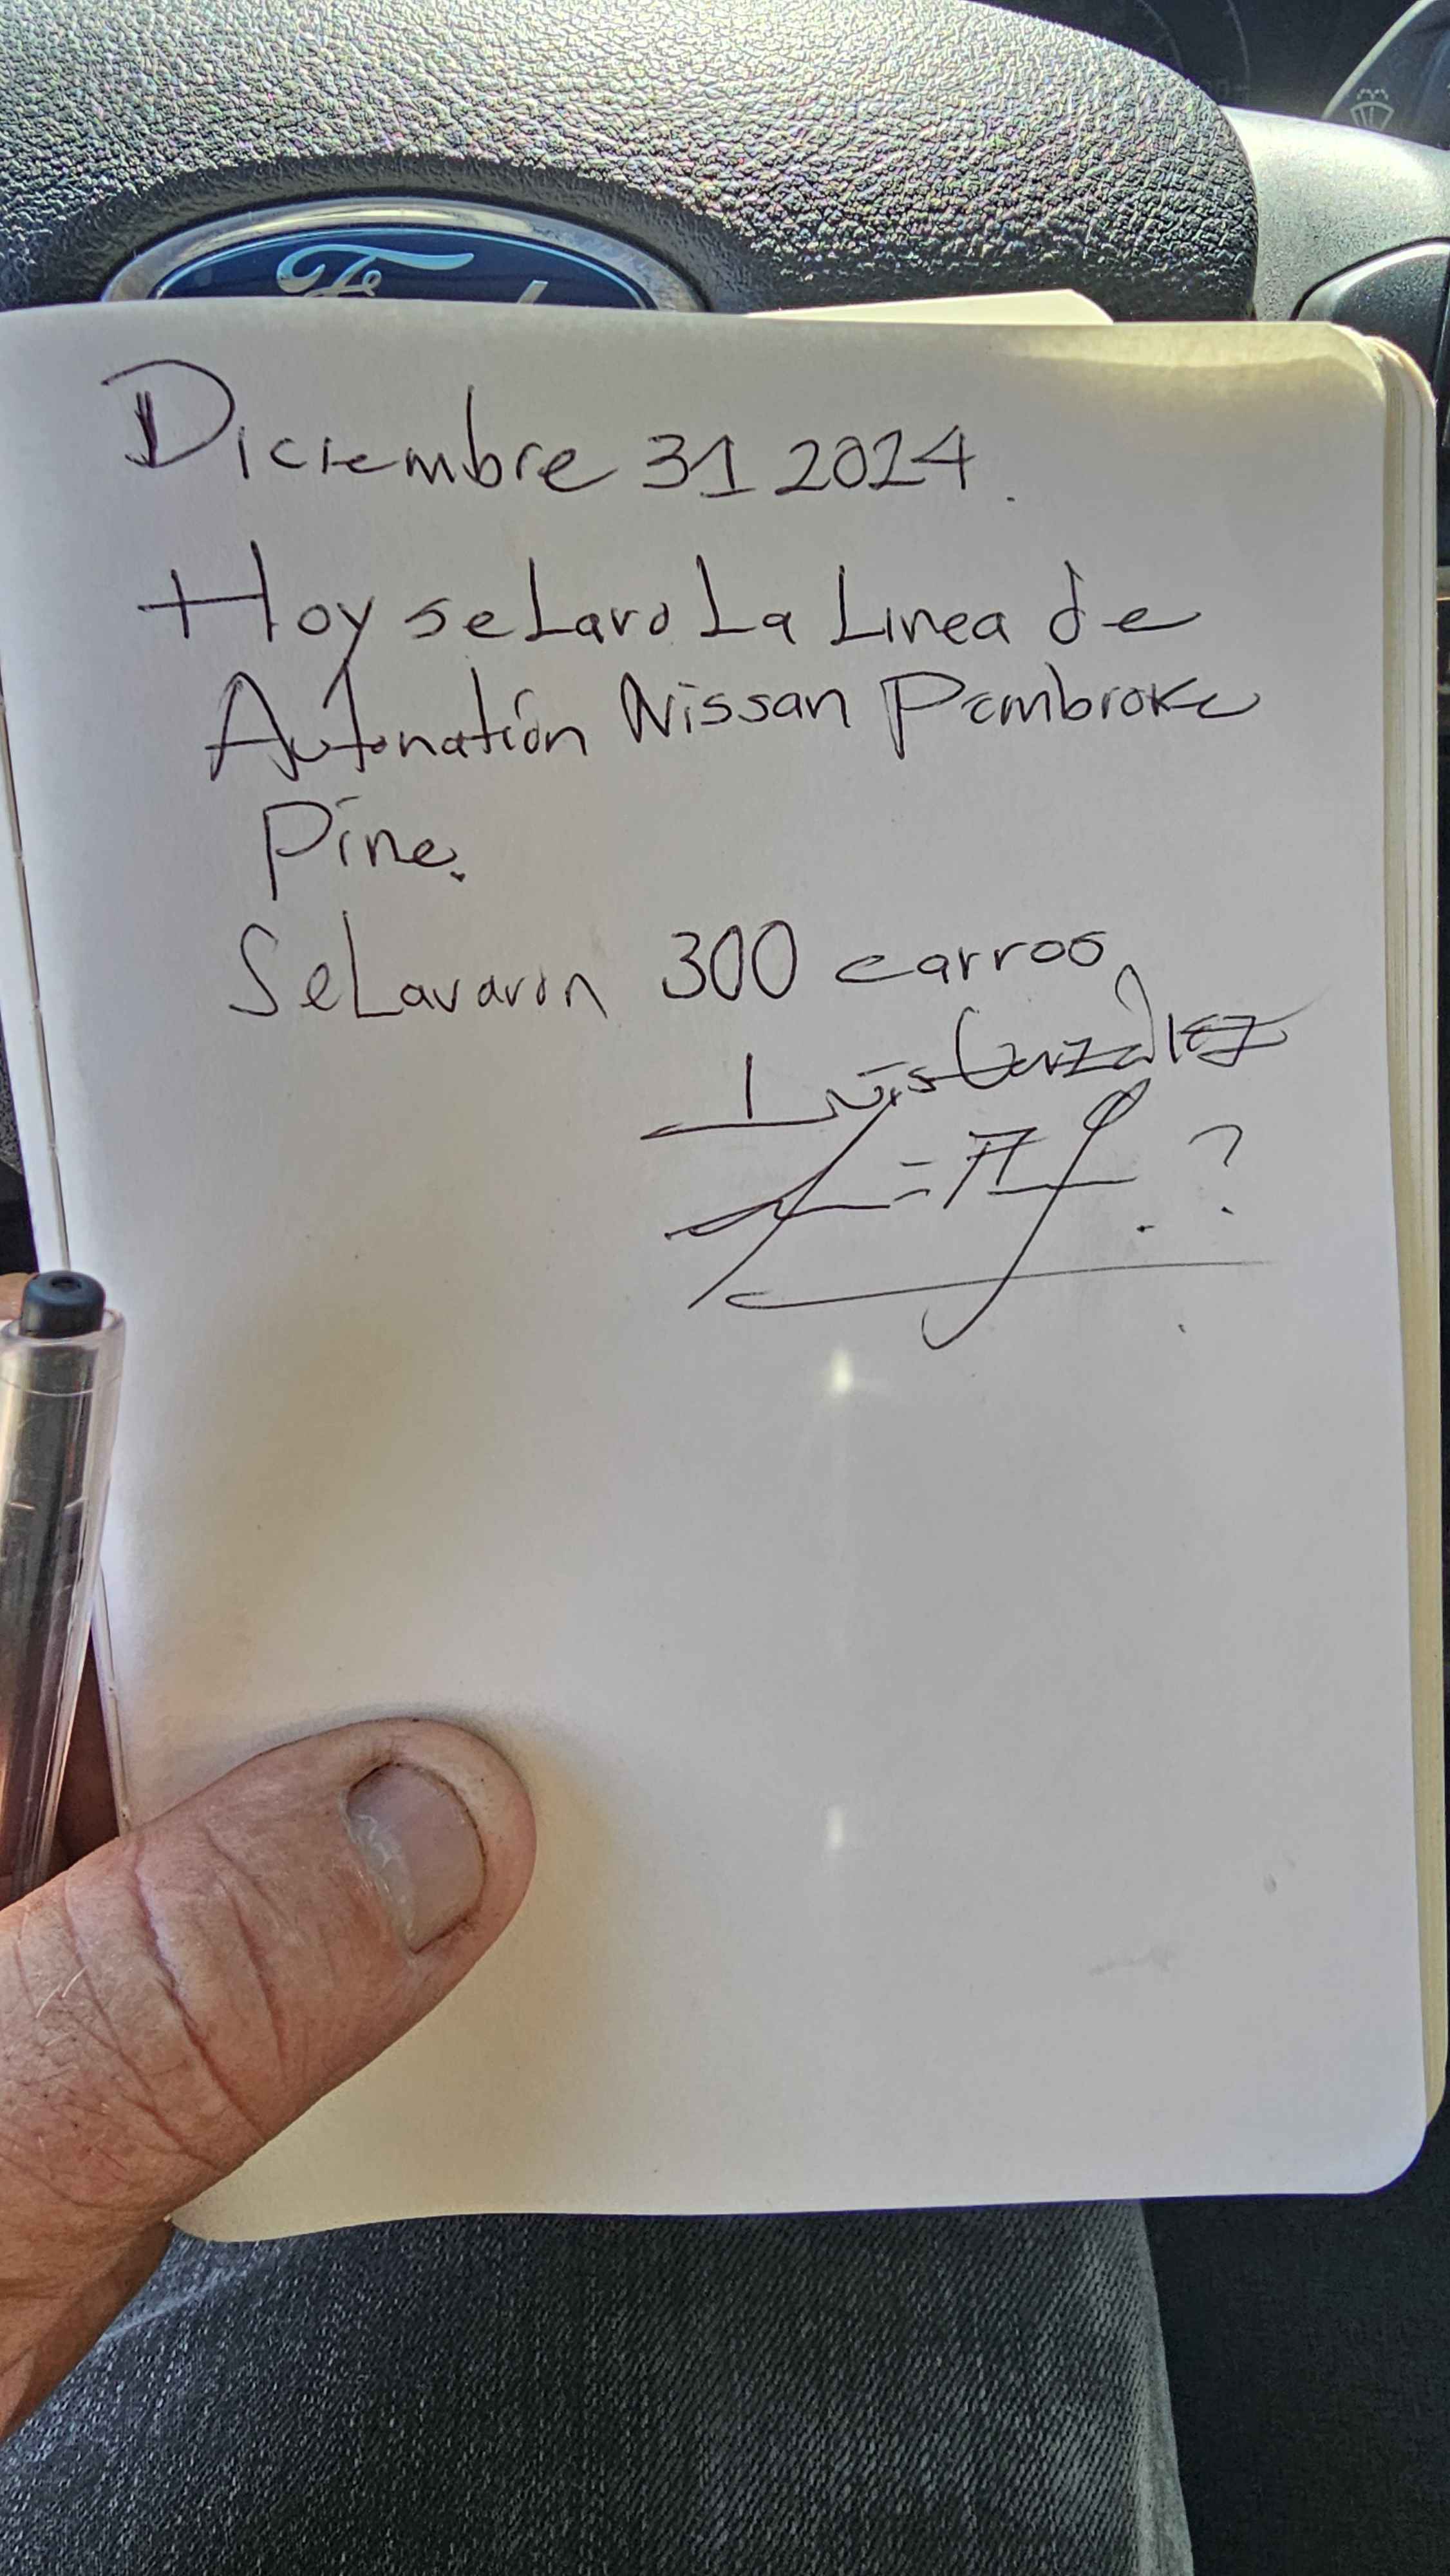 Ford
Diciembre 31 2024.
Hoy se Lavo La Linea de
Autonatión Nissan Pembroke
Pine.
Se Lavaron 300 carros
Luis González